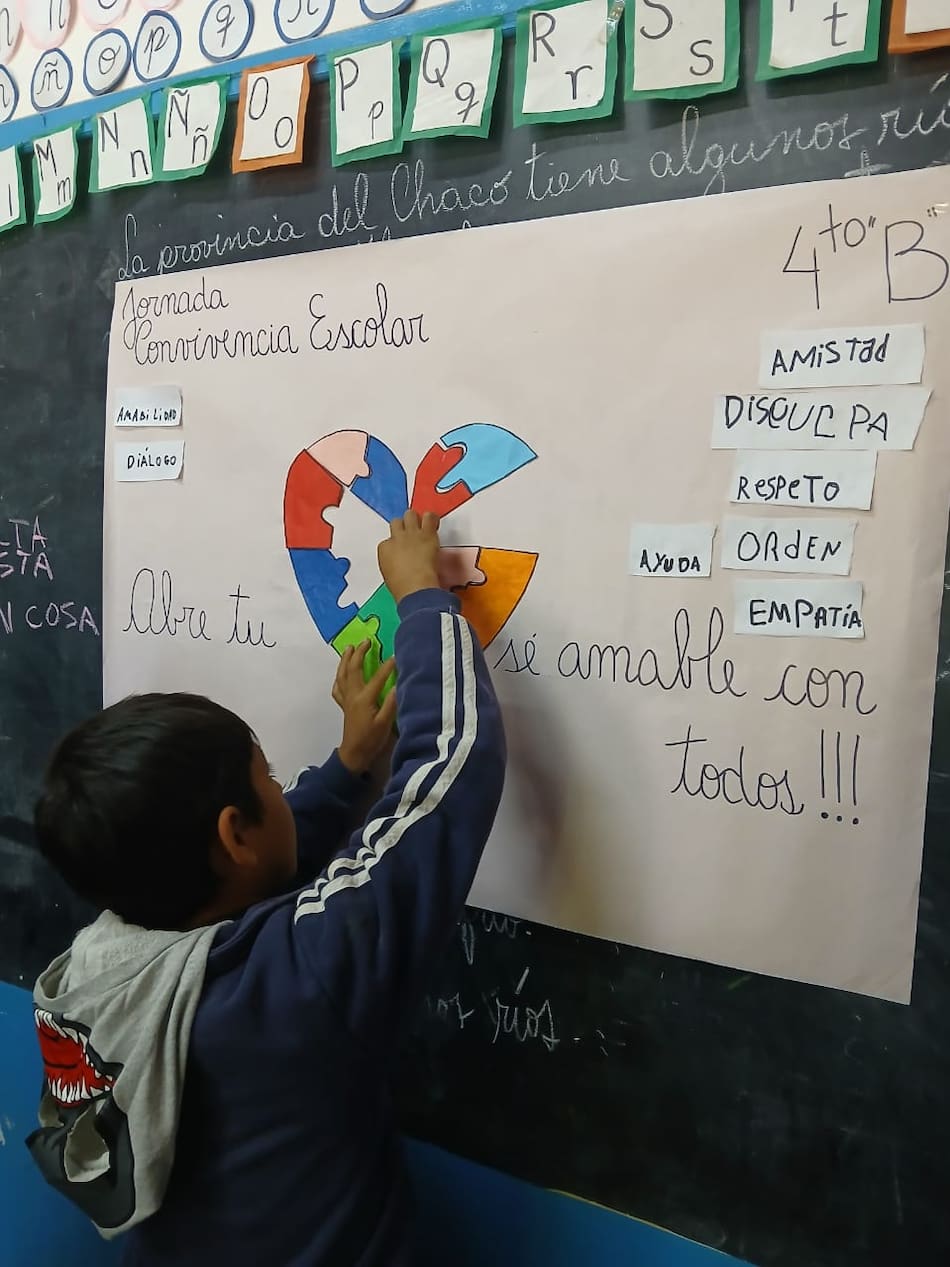 ñ o p q
M m N n Ñ ñ O o P p Q q R r S s t
La provincia del Chaco tiene algunos
4to "B"
Jornada
Convivencia Escolar
AMABILIDAD
DIÁLOGO
AMISTad
DISCULPA
RESPETO
AYUDA
ORdEN
EMPATÍA
COSA
Abre tu
sé amable con
todos!!!
ríos